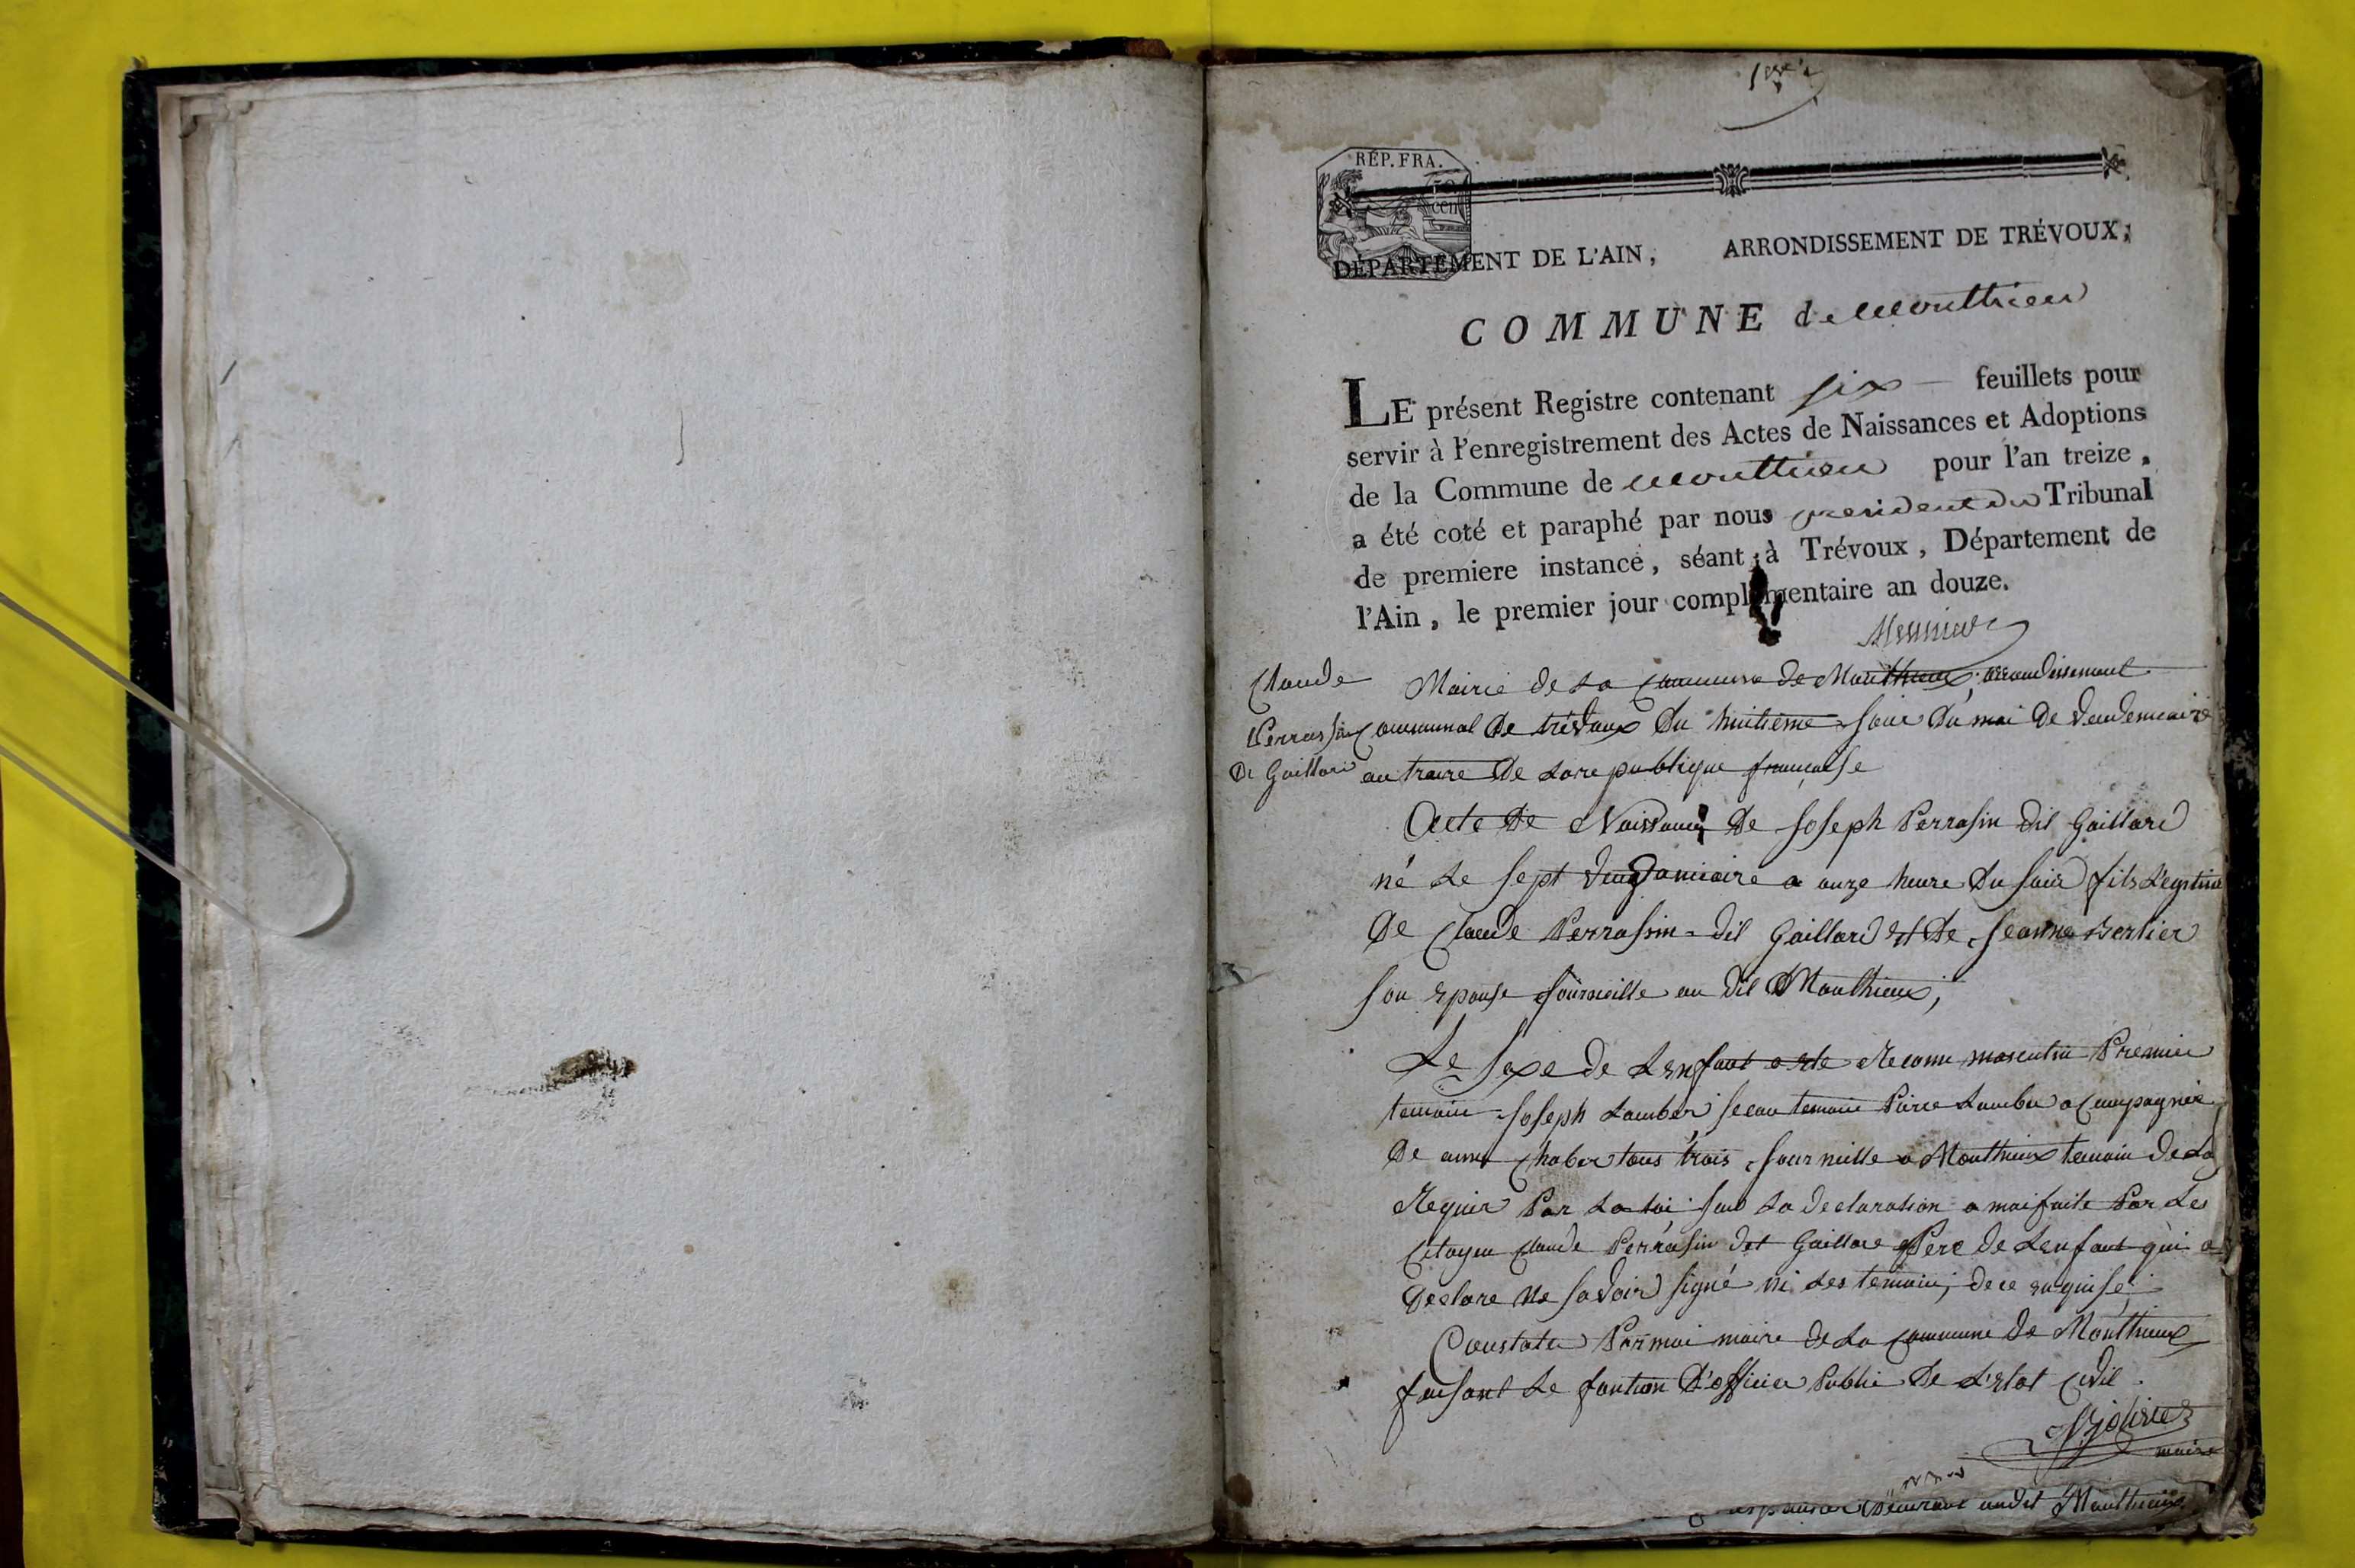 1er
RÉP. FRA.
cen
DÉPARTEMENT DE L'AIN, ARRONDISSEMENT DE TRÉVOUX,
COMMUNE de Monthieu
LE présent Registre contenant six feuillets pour
servir à l'enregistrement des Actes de Naissances et Adoptions
de la Commune de Monthieu pour l'an treize,
a été coté et paraphé par nous president du Tribunal
de premiere instance, séant à Trévoux, Département de
l'Ain, le premier jour complémentaire an douze.
Claude
Perrassin
Di Gaillard
Mairie de La Commune de Monthieux, arrondissement
Communal de trévoux Du huitième Jour Du moi De Vendemiaire
an traize De La republique francaise
Acte de Naissance De Joseph Perrasin dit Gaillard
né Le sept Vendamiaire a onze heure Du soir fils Legitime
De Claude Perrassin dit Gaillard et De Jeanne Berlier
son epouse au dit Monthieux,
Le sexe de Lenfant a ete Reconu masculin Premier
temoin Joseph Lamber Secon temoin Piere Lamber a Compagnié
De anne Chaber tous trois a Monthieux temoin
Requir Par La loi sur La declaration a moi faite Par Les
Citoyen Claude Perrasin det Gaillare Pere de Lenfant qui a
Declare Ne savoir signé ni Les temoin, de ce enquise,
Constater Par moi maire de La Commune de Monthieux
faisant Le fontion D'officier Publi De L'etat Civil.
maire
au dit Monthieux